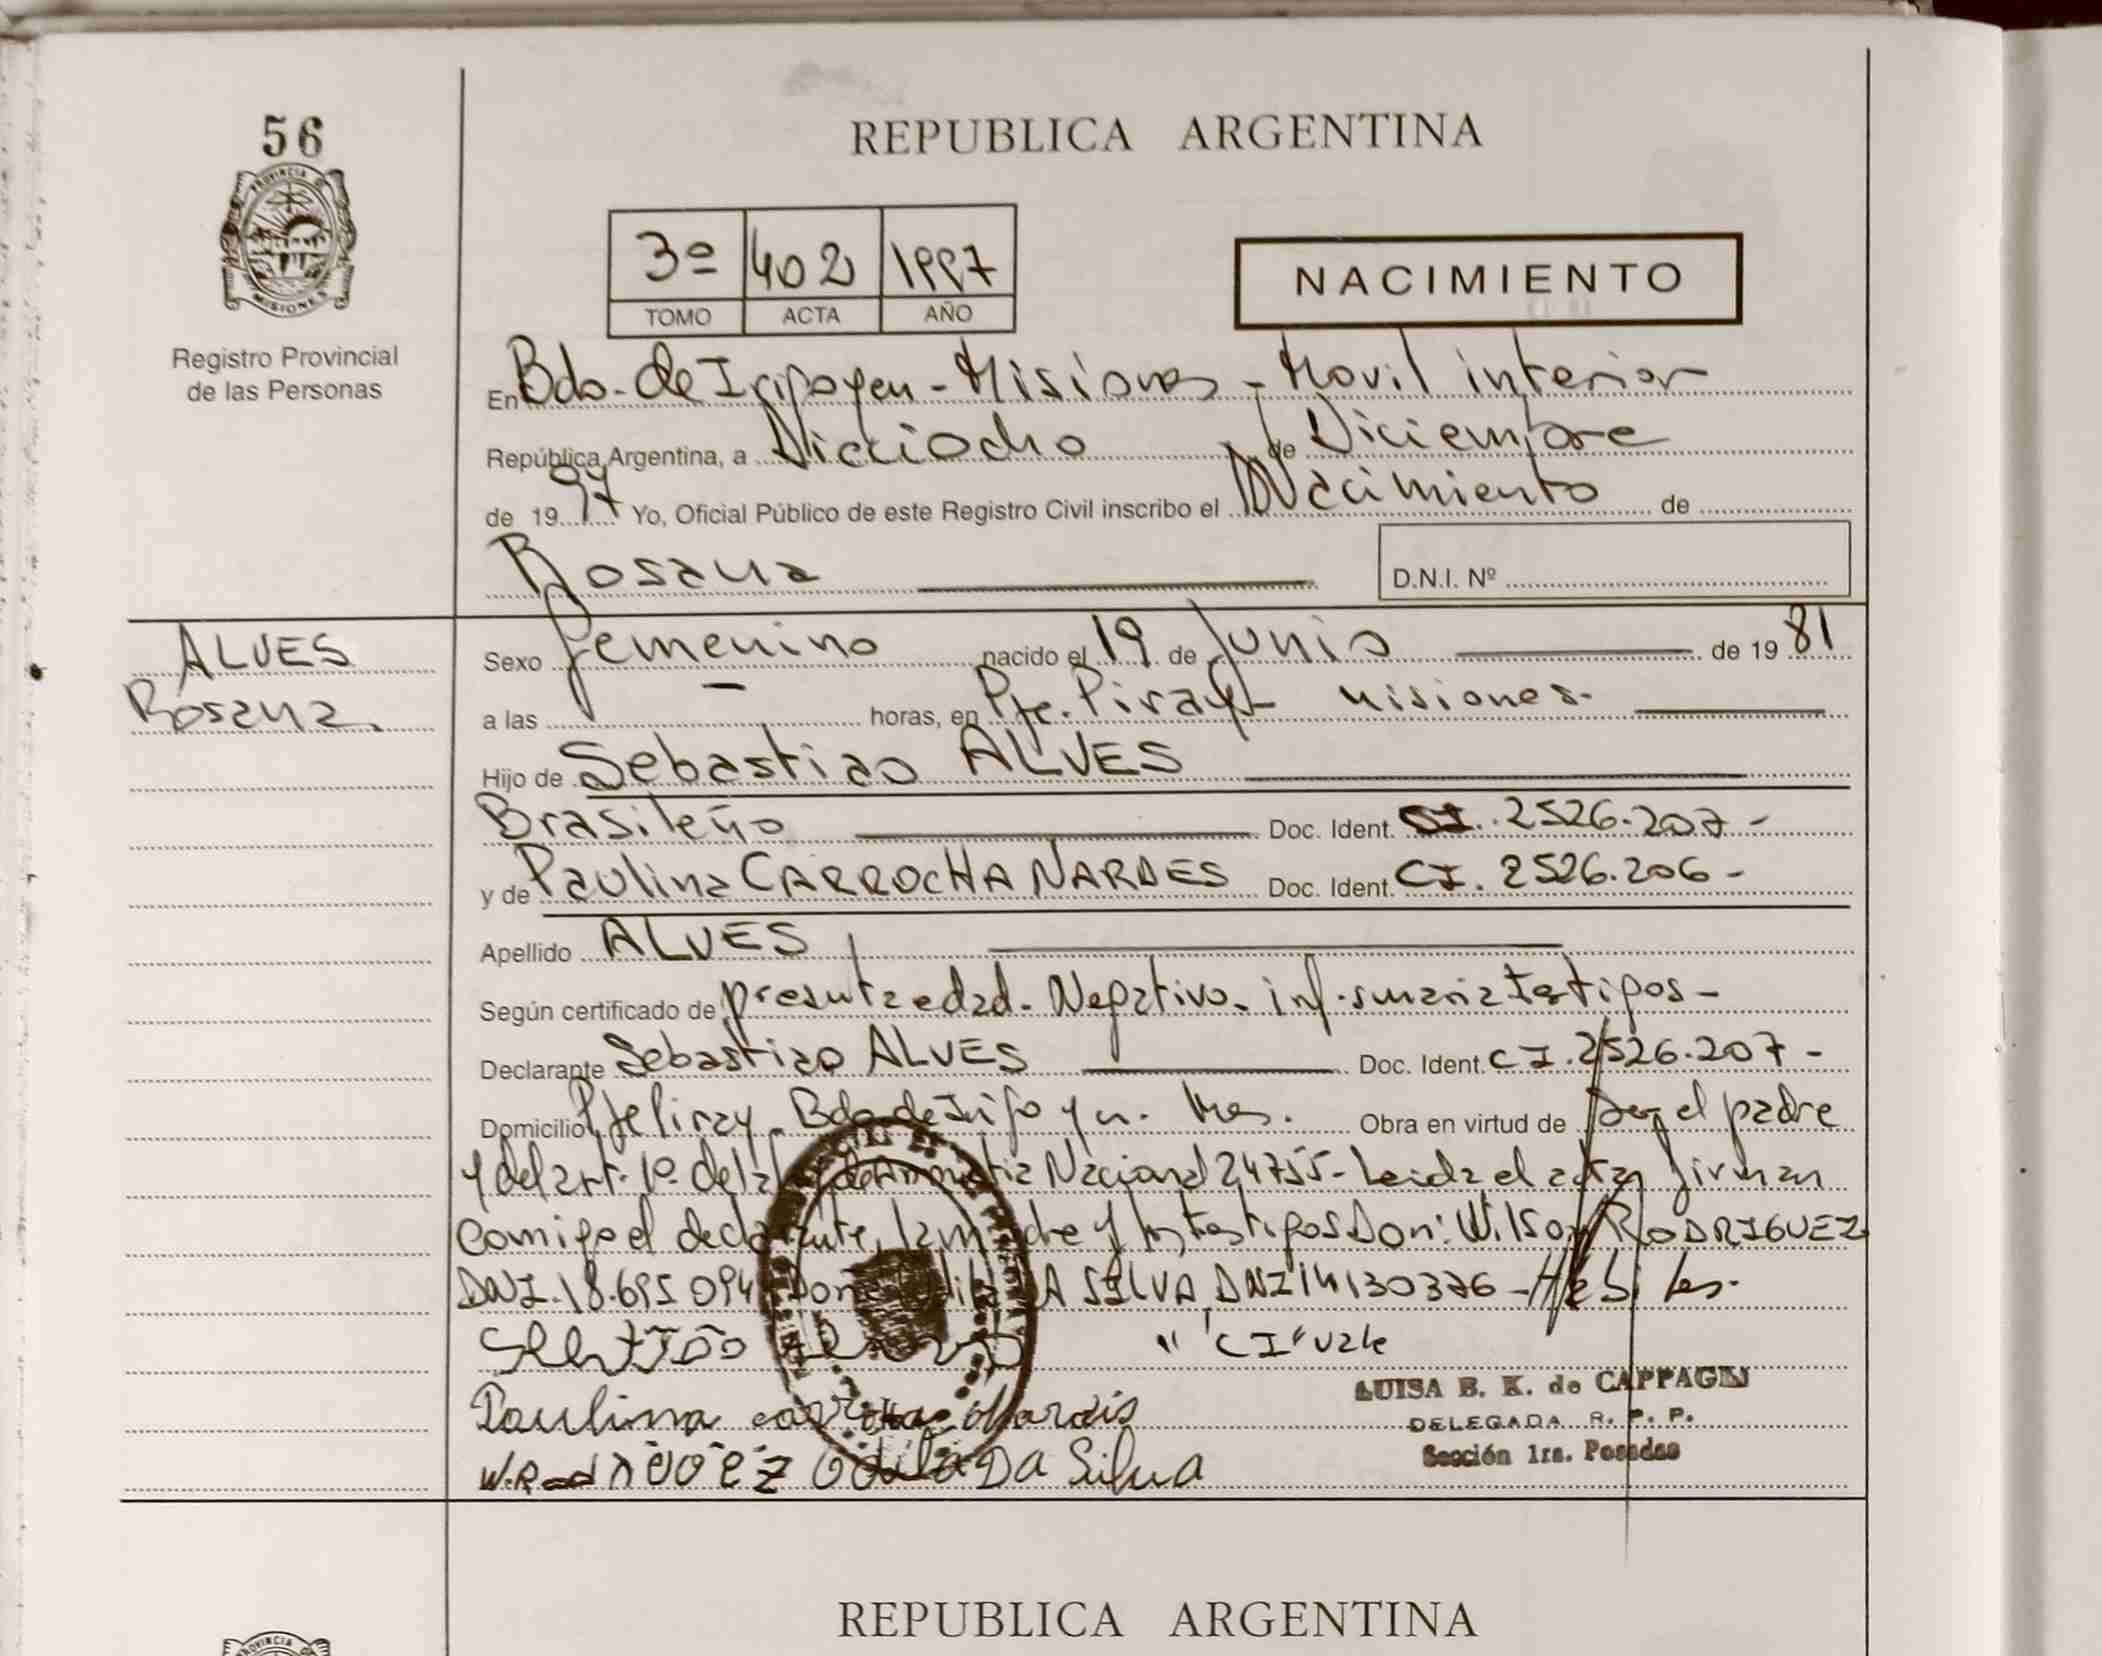 56
PROVINCIA DE
MISIONES
Registro Provincial
de las Personas
REPUBLICA ARGENTINA
3º 402 1997
TOMO ACTA AÑO
NACIMIENTO
En Bdo. de Irigoyen - Misiones - Movil interior
República Argentina, a Dieciocho de Diciembre
de 1997 Yo, Oficial Público de este Registro Civil inscribo el Nacimiento de
Rosana
D.N.I. Nº
ALVES
Rosana.
Sexo femenino nacido el 19 de Junio de 1981
a las - horas, en Pte. Piray - misiones.
Hijo de Sebastiao ALVES
Brasileño Doc. Ident. 2526.207-
y de Paulina CARROCHA NARDES Doc. Ident. CI. 2526.206-
Apellido ALVES
Según certificado de presunta edad. Negativo. inf. sumaria testigos-
Declarante Sebastiao ALVES Doc. Ident. CI. 2526.207-
Domicilio Bdo de Obra en virtud de ser el padre
y del art. 1º. de la Nacional 24755- Leida el acta firman
comigo el declarante, la madre y los testigos Don: Wilson RODRIGUEZ
DNI. 18.695.094 DA SILVA DNI 14130376 - Habiles.
"CI" vale
Paulina
LUISA B. K. de CAPPAGLI
DELEGADA R. P. P.
Sección 1ra. Posadas
Odila DA Silva
REPUBLICA ARGENTINA
PROVINCIA